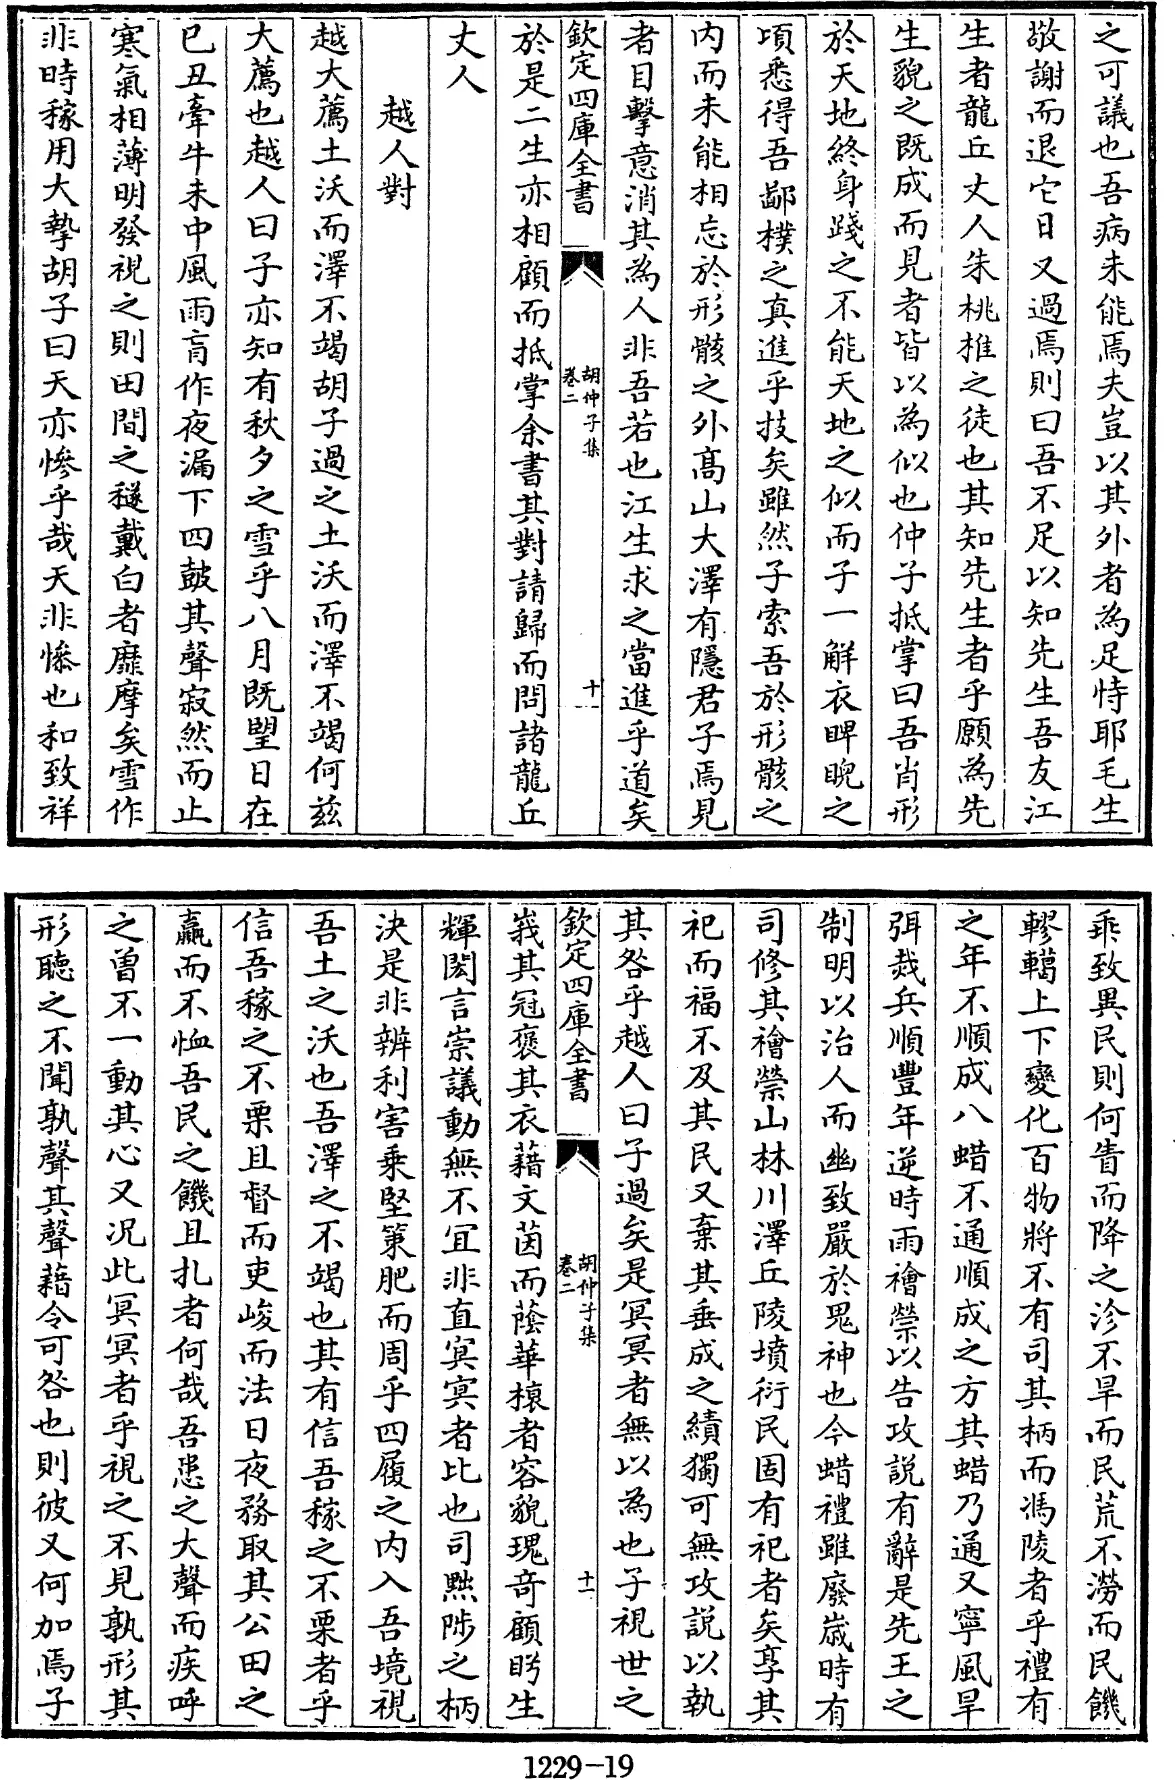 之可議也吾病未能焉夫豈以其外者為足恃耶毛生
敬謝而退它日又過焉則曰吾不足以知先生吾友江
生者龍丘丈人朱桃椎之徒也其知先生者乎願為先
生貌之既成而見者皆以為似也仲子抵掌曰吾肖形
於天地終身踐之不能天地之似而子一解衣睥睨之
頃悉得吾鄙樸之真進乎技矣雖然子索吾於形骸之
内而未能相忘於形骸之外髙山大澤有隱君子焉見
者目擊意消其為人非吾若也江生求之當進乎道矣
欽定四庫全書
胡仲子集
卷二
十
於是二生亦相顧而抵掌余書其對請歸而問諸龍丘
丈人
越人對
越大薦土沃而澤不竭胡子過之土沃而澤不竭何兹
大薦也越人曰子亦知有秋夕之雪乎八月既朢日在
已丑牽牛未中風雨肓作夜漏下四鼓其聲寂然而止
寒氣相薄明發視之則田間之穟戴白者靡摩矣雪作
非時稼用大摯胡子曰天亦慘乎哉天非慘也和致祥
乖致異民則何眚而降之沴不旱而民荒不澇而民饑
轇轕上下變化百物將不有司其柄而馮陵者乎禮有
之年不順成八蜡不通順成之方其蜡乃通又寧風旱
弭烖兵順豐年逆時雨禬禜以告攻説有辭是先王之
制明以治人而幽致嚴於鬼神也今蜡禮雖廢歳時有
司修其禬禜山林川澤丘陵墳衍民固有祀者矣享其
祀而福不及其民又棄其垂成之績獨可無攻説以執
其咎乎越人曰子過矣是冥冥者無以為也子視世之
欽定四庫全書
胡仲子集
卷二
十一
峩其冠褒其衣藉文茵而蔭華榱者容貌瑰奇顧眄生
輝閎言崇議動無不宜非直㝠㝠者比也司黜陟之柄
決是非辨利害乘堅策肥而周乎四履之内入吾境視
吾土之沃也吾澤之不竭也其有信吾稼之不栗者乎
信吾稼之不栗且督而吏峻而法日夜務取其公田之
贏而不恤吾民之饑且扎者何哉吾患之大聲而疾呼
之曽不一動其心又況此冥冥者乎視之不見孰形其
形聽之不聞孰聲其聲藉令可咎也則彼又何加焉子
1229-19